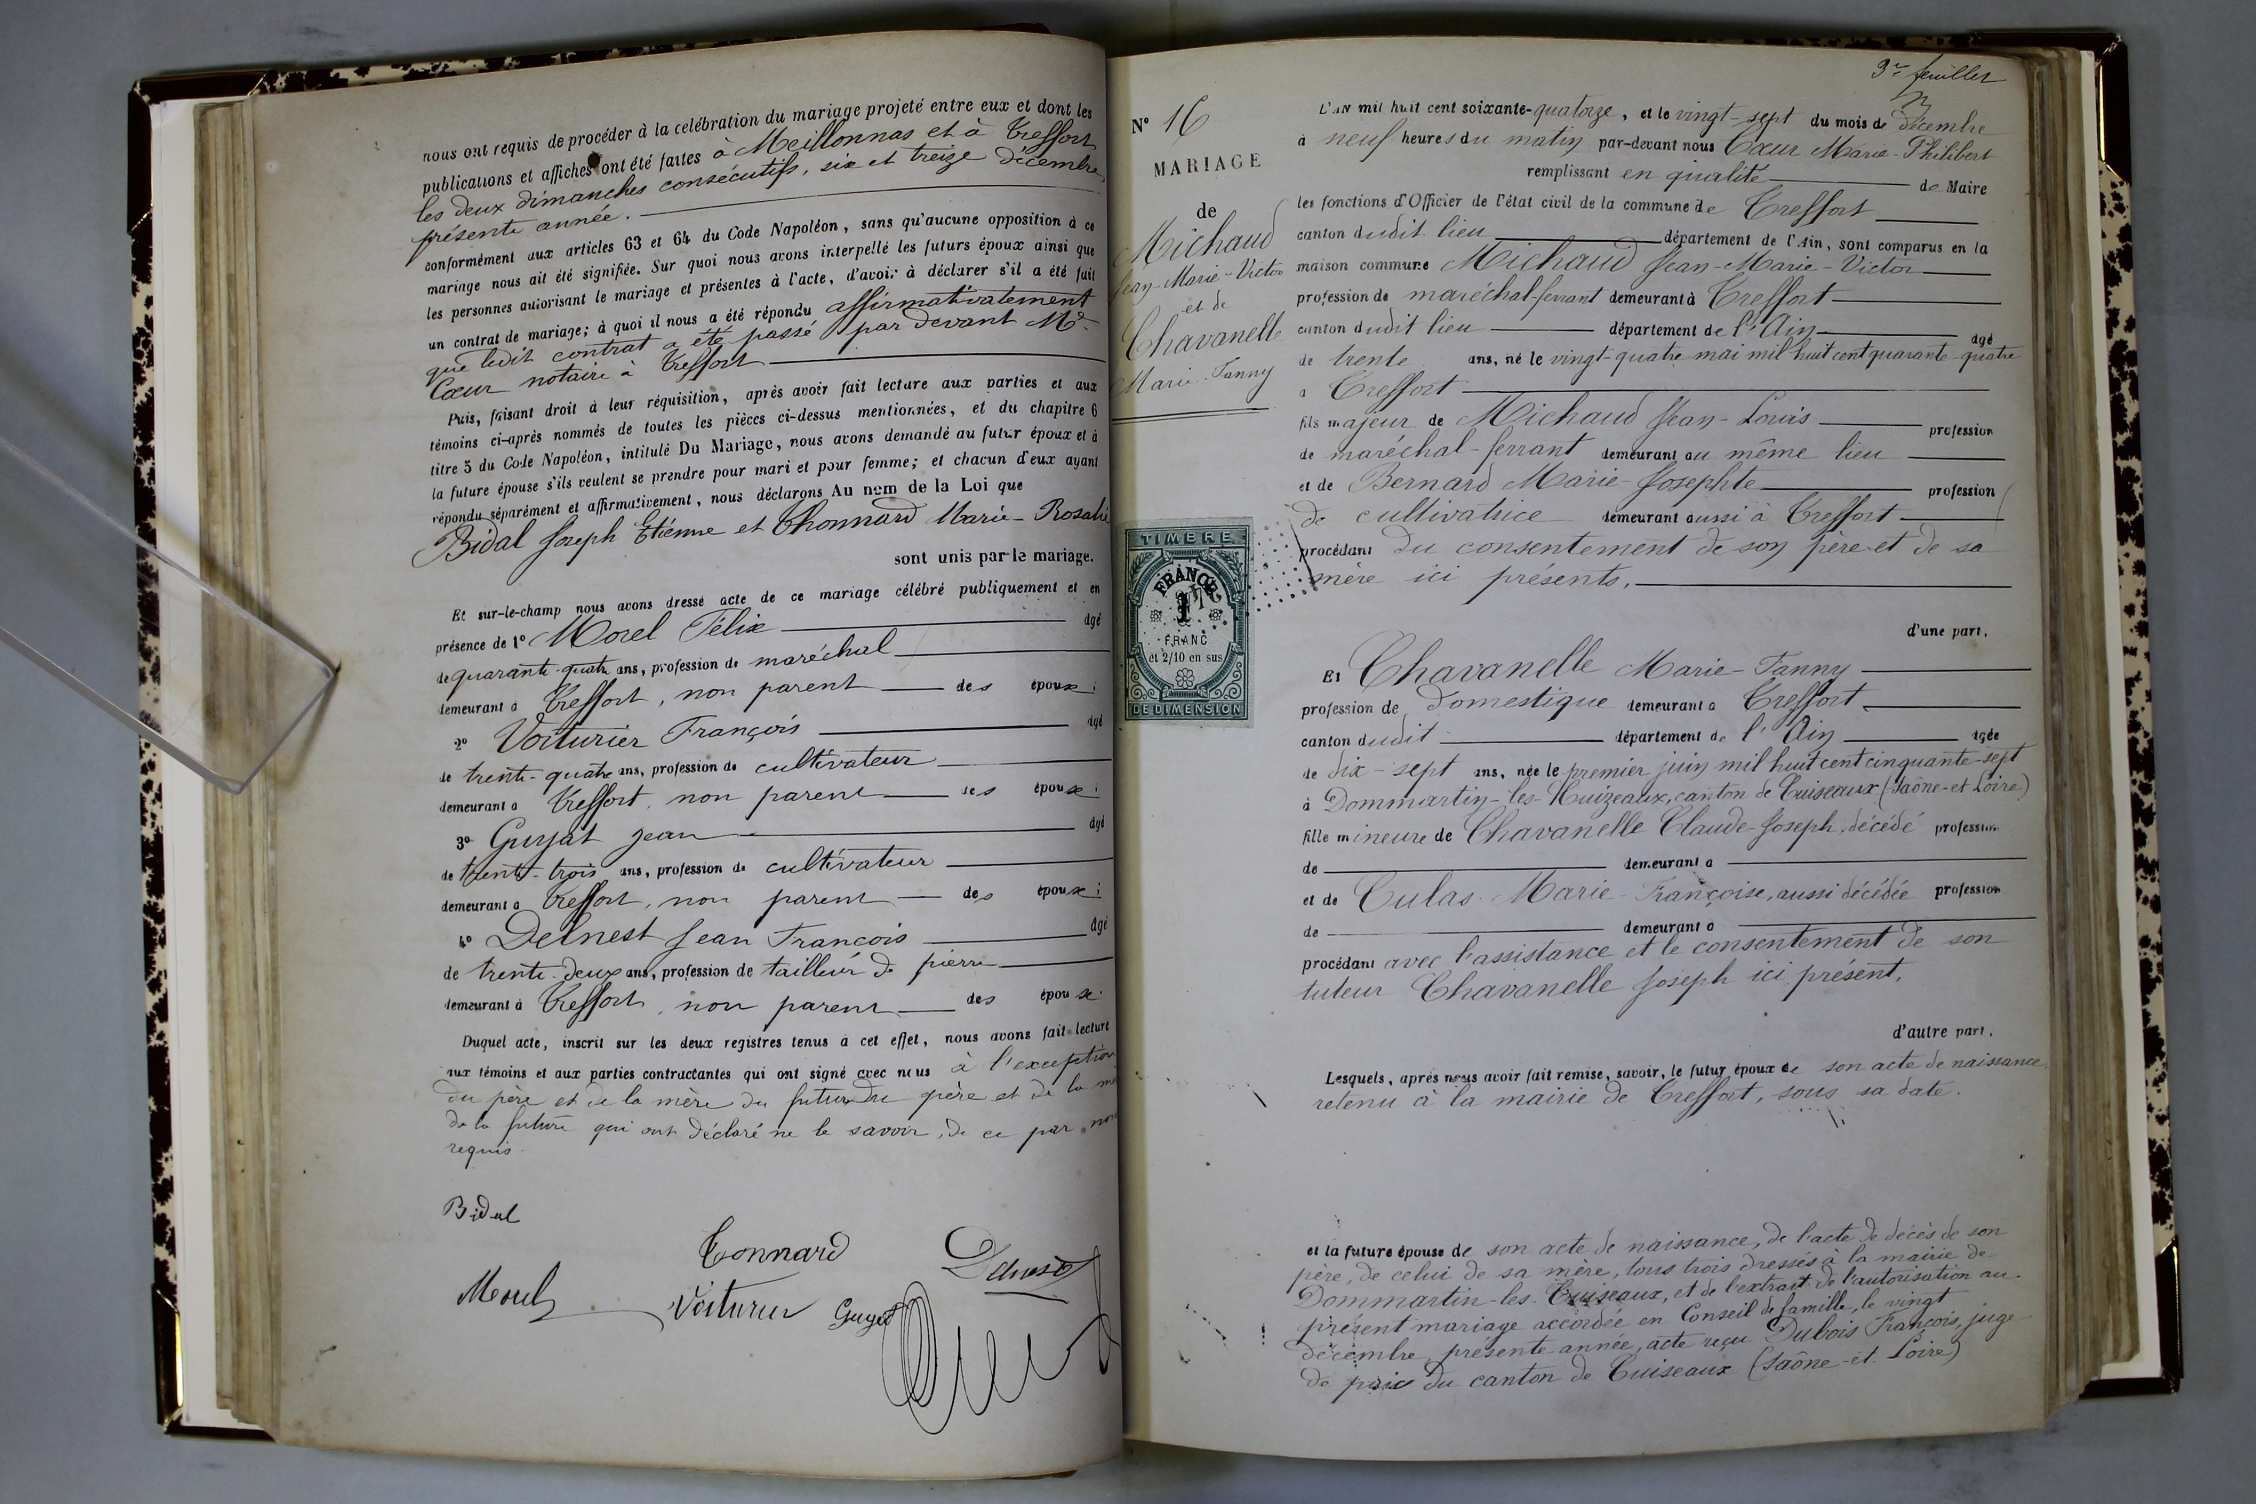 nous ont requis de procéder à la celébration du mariage projeté entre eux et dont les
publications et affiches ont été faites à Meillonnas et à Treffort
les deux dimanches consécutifs, six et treize décembre
présente année.
conformément aux articles 63 et 64 du Code Napoléon, sans qu'aucune opposition à ce
mariage nous ait été signifiée. Sur quoi nous avons interpellé les futurs époux ainsi que
les personnes autorisant le mariage et présentes à l'acte, d'avoir à déclarer s'il a été fait
un contrat de mariage; à quoi il nous a été répondu affirmativatement
que ledit contrat a été passé par devant Me
Cœur notaire à Treffort
Puis, faisant droit à leur réquisition, après avoir fait lecture aux parties et aux
témoins ci-après nommés de toutes les pièces ci-dessus mentionnées, et du chapitre 6
titre 5 du Code Napoléon, intitulé Du Mariage, nous avons demandé au futur époux et à
la future épouse s'ils veulent se prendre pour mari et pour femme; et chacun d'eux ayant
répondu séparément et affirmativement, nous déclarons Au nom de la Loi que
Bidal Joseph Etienne et Thonnard Marie-Rosalie
sont unis par le mariage.
Et sur-le-champ nous avons dressé acte de ce mariage célébré publiquement et en
présence de 1o Morel Félix âgé
de quarante-quatre ans, profession de maréchal
demeurant à Treffort, non parent des époux;
2o Voiturier François âgé
de trente-quatre ans, profession de cultivateur
demeurant à Treffort, non parent des époux;
3o Guyat Jean âgé
de trente-trois ans, profession de cultivateur
demeurant à Treffort, non parent des époux;
4o Delnest Jean François âgé
de trente-deux ans, profession de tailleur de pierre
demeurant à Treffort, non parent des époux.
Duquel acte, inscrit sur les deux registres tenus à cet effet, nous avons fait lecture
aux témoins et aux parties contractantes qui ont signé avec nous à l'exception
du père et de la mère du futur du père et de la
de la future qui ont déclaré ne le savoir, de ce par
requis.
Bidal
Tonnard
Morel
Voiturier
Guyat
3e feuillet
No 16
MARIAGE
de
Michaud
Jean-Marie-Victor
et de
Chavanelle
Marie-Fanny
TIMBRE
FRANCE
1
FRANC
et 2/10 en sus
DE DIMENSION
L'AN mil huit cent soixante-quatorze, et le vingt-sept du mois de décembre
à neuf heures du matin par-devant nous Cœur Marie-Philibert
remplissant en qualité de Maire
les fonctions d'Officier de l'état civil de la commune de Treffort
canton dudit lieu département de l'Ain, sont comparus en la
maison commune Michaud Jean-Marie-Victor
profession de maréchal-ferrant demeurant à Treffort
canton dudit lieu département de l'Ain âgé
de trente ans, né le vingt-quatre mai mil huit cent quarante-quatre
à Treffort
fils majeur de Michaud Jean-Louis profession
de maréchal-ferrant demeurant au même lieu
et de Bernard Marie-Josephte profession
de cultivatrice demeurant aussi à Treffort
procédant du consentement de son père et de sa
mère ici présents.
d'une part,
Et Chavanelle Marie-Fanny
profession de domestique demeurant à Treffort
canton dudit département de l'Ain âgée
de dix-sept ans, née le premier juin mil huit cent cinquante-sept
à Dommartin-les-Kuizeaux, canton de Cuiseaux (Saône-et-Loire)
fille mineure de Chavanelle Claude-Joseph, décédé profession
de demeurant à
et de Culas Marie-Françoise, aussi décédée profession
de demeurant à
procédant avec l'assistance et le consentement de son
tuteur Chavanelle Joseph ici présent.
d'autre part.
Lesquels, après nous avoir fait remise, savoir, le futur époux de son acte de naissance
retenu à la mairie de Treffort, sous sa date.
et la future épouse de son acte de naissance, de l'acte de décès de son
père, de celui de sa mère, tous trois dressés à la mairie de
Dommartin-les-Cuiseaux, et de l'extrait de l'autorisation au
présent mariage accordée en Conseil de famille, le vingt
décembre, présente année, acte reçu Dubois François, juge
de paix du canton de Cuiseaux (Saône-et-Loire)